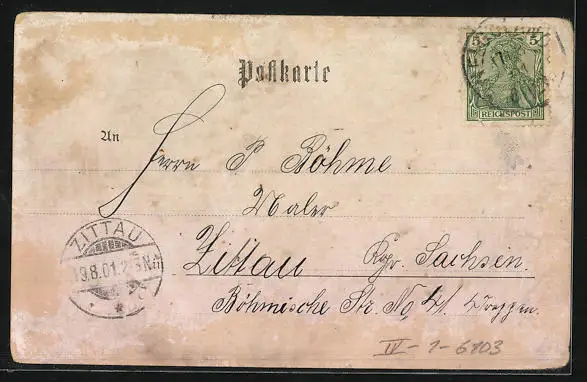 Postkarte
5
REICHSPOST
An
Herrn P Böhme
Maler
Zittau Kgr. Sachsen.
Böhmische Str. No 4I. Treppen.
ZITTAU
19.8.01.
IV-1-6103